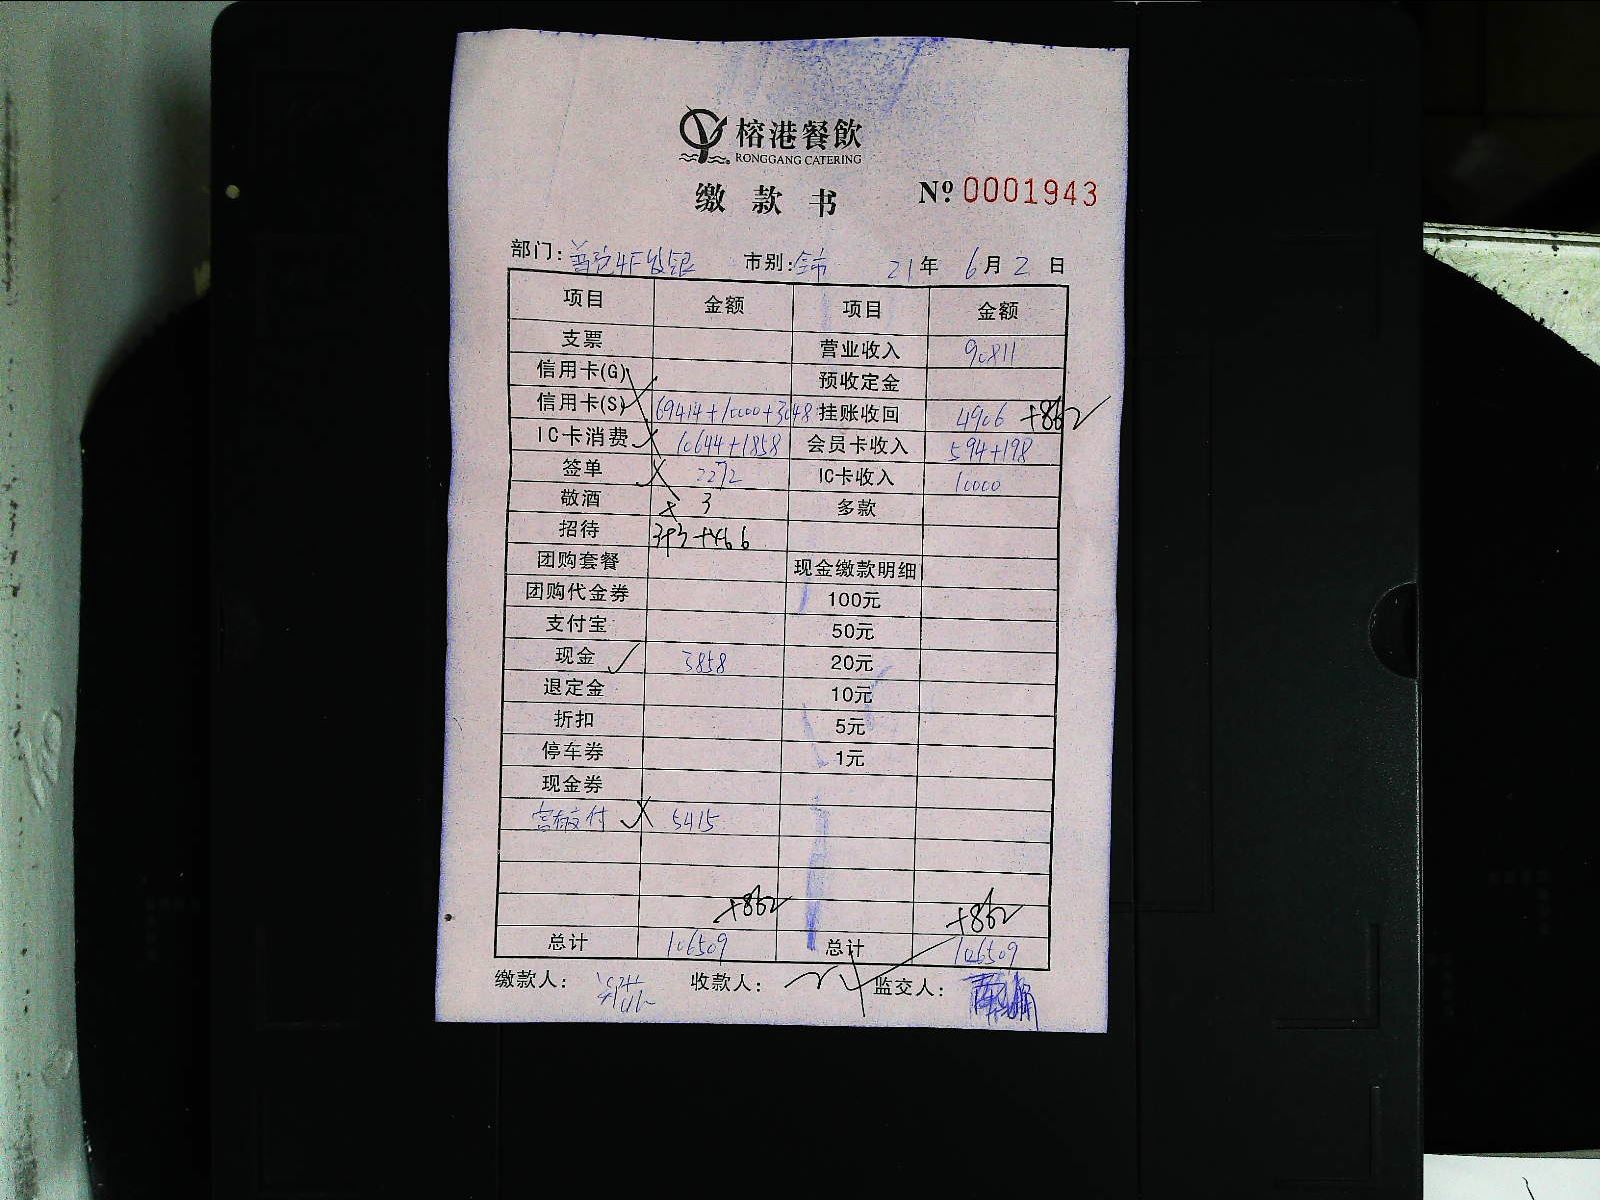 榕港餐飲
RONGGANG CATERING
缴款书 Nº 0001943
部门: 4F 市别:全市 21年 6月 2日
项目 金额 项目 金额
支票 营业收入 90811
信用卡(G) 预收定金
信用卡(S) 69414+10000+3048 挂账收回 4906 +862
IC卡消费 10644+1858 会员卡收入 594+198
签单 2272 IC卡收入 10000
敬酒 3 多款
招待 +466
团购套餐 现金缴款明细
团购代金券 100元
支付宝 50元
现金 3858 20元
退定金 10元
折扣 5元
停车券 1元
现金券
支付 5415
+862 +862
总计 106509 总计 106509
缴款人: 收款人: 监交人: